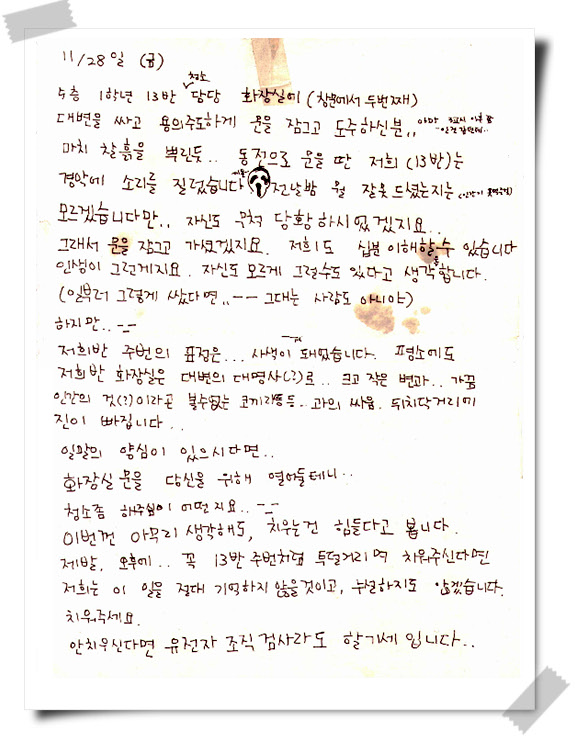 11/28일 (금)
5층 1학년 13반 청소 담당 화장실에 (창문에서 두번째)
대변을 싸고 용의주도하게 문을 잠그고 도주하신분,, 아마 3교시 이후
마치 찰흙을 뿌린듯.. 동전으로 문을 딴 저희 (13반)는
경악에 소리를 질렀습니다 전날밤 뭘 잘못드셨는지는
모르겠습니다만,, 자신도 무척 당황 하시었겠지요..
그래서 문을 잠그고 가셨겠지요. 저희도 십분 이해할수 있습니다
인생이 그런게지요. 자신도 모르게 그럴수도 있다고 생각을 합니다.
(일부러 그렇게 쌌다면,, -- 그대는 사람도 아니야)
하지만.. -_-
저희반 주번의 표정은... 사색이 돼었습니다. 평소에도
저희반 화장실은 대변의 대명사(?)로.. 크고 작은 변과.. 가끔
인간의 것(?)이라고 볼수없는 코끼리똥등..과의 싸움. 뒤치닥거리에
진이 빠집니다..
일말의 양심이 있으시다면..
화장실 문을 당신을 위해 열어둘테니..
청소좀 해주심이 어떤지요.. -_-
이번껀 아무리 생각해도, 치우는건 힘들다고 봅니다.
제발, 오후에.. 꼭 13반 주번처럼 투덜거리며 치워주신다면
저희는 이 일을 절대 기억하지 않을것이고, 누설하지도 않겠습니다.
치워주세요.
안치우신다면 유전자 조직검사라도 할기세입니다..